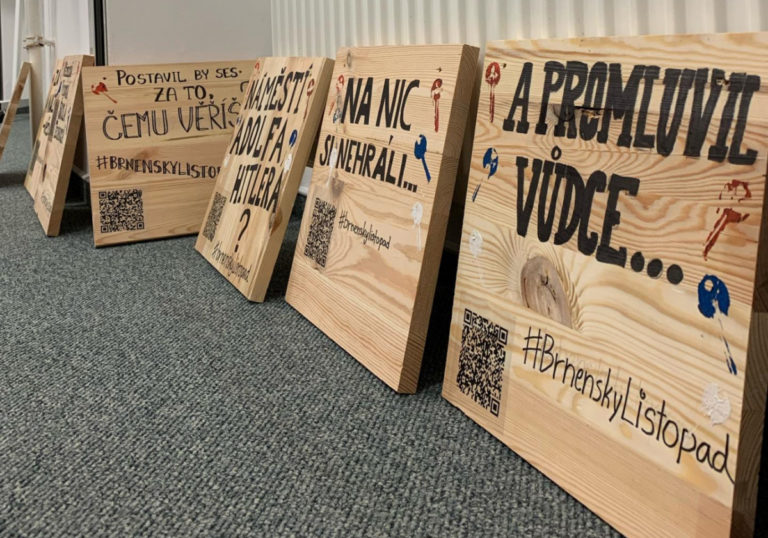 POSTAVIL BY SES
ZA TO,
ČEMU VĚŘÍŠ
#BRNENSKYLISTOP
NÁMĚSTÍ
ADOLFA
HITLERA
?
#Brnenskylistopad
NA NIC
SI NEHRÁLI...
#Brnenskylistopad
A PROMLUVIL
VŮDCE...
#BrnenskyListopad